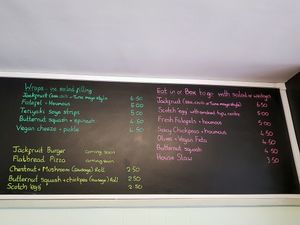 Wraps - inc salad filling
Jackfruit (BBQ, Chilli or Tuna mayo style) 6.50
Falafel + Houmous 5.00
Teriyaki Soya strips 5.00
Butternut squash + spinach 4.50
Vegan cheese + pickle 4.50
Jackfruit Burger coming soon
Flatbread Pizza coming soon
Chestnut + Mushroom (sausage) Roll 2.50
Butternut squash + chickpea (sausage) Roll 2.50
Scotch Vegg 2.50
Eat in or Box to go with salad or wedges
Jackfruit (BBQ, Chilli or Tuna mayo style) 6.50
Scotch 'egg' with smoked tofu centre 5.00
Fresh Falafels + houmous 5.00
Spicy Chickpeas + houmous 4.50
Olives + Vegan Feta 4.50
Butternut squash 4.50
House Slaw 3.50